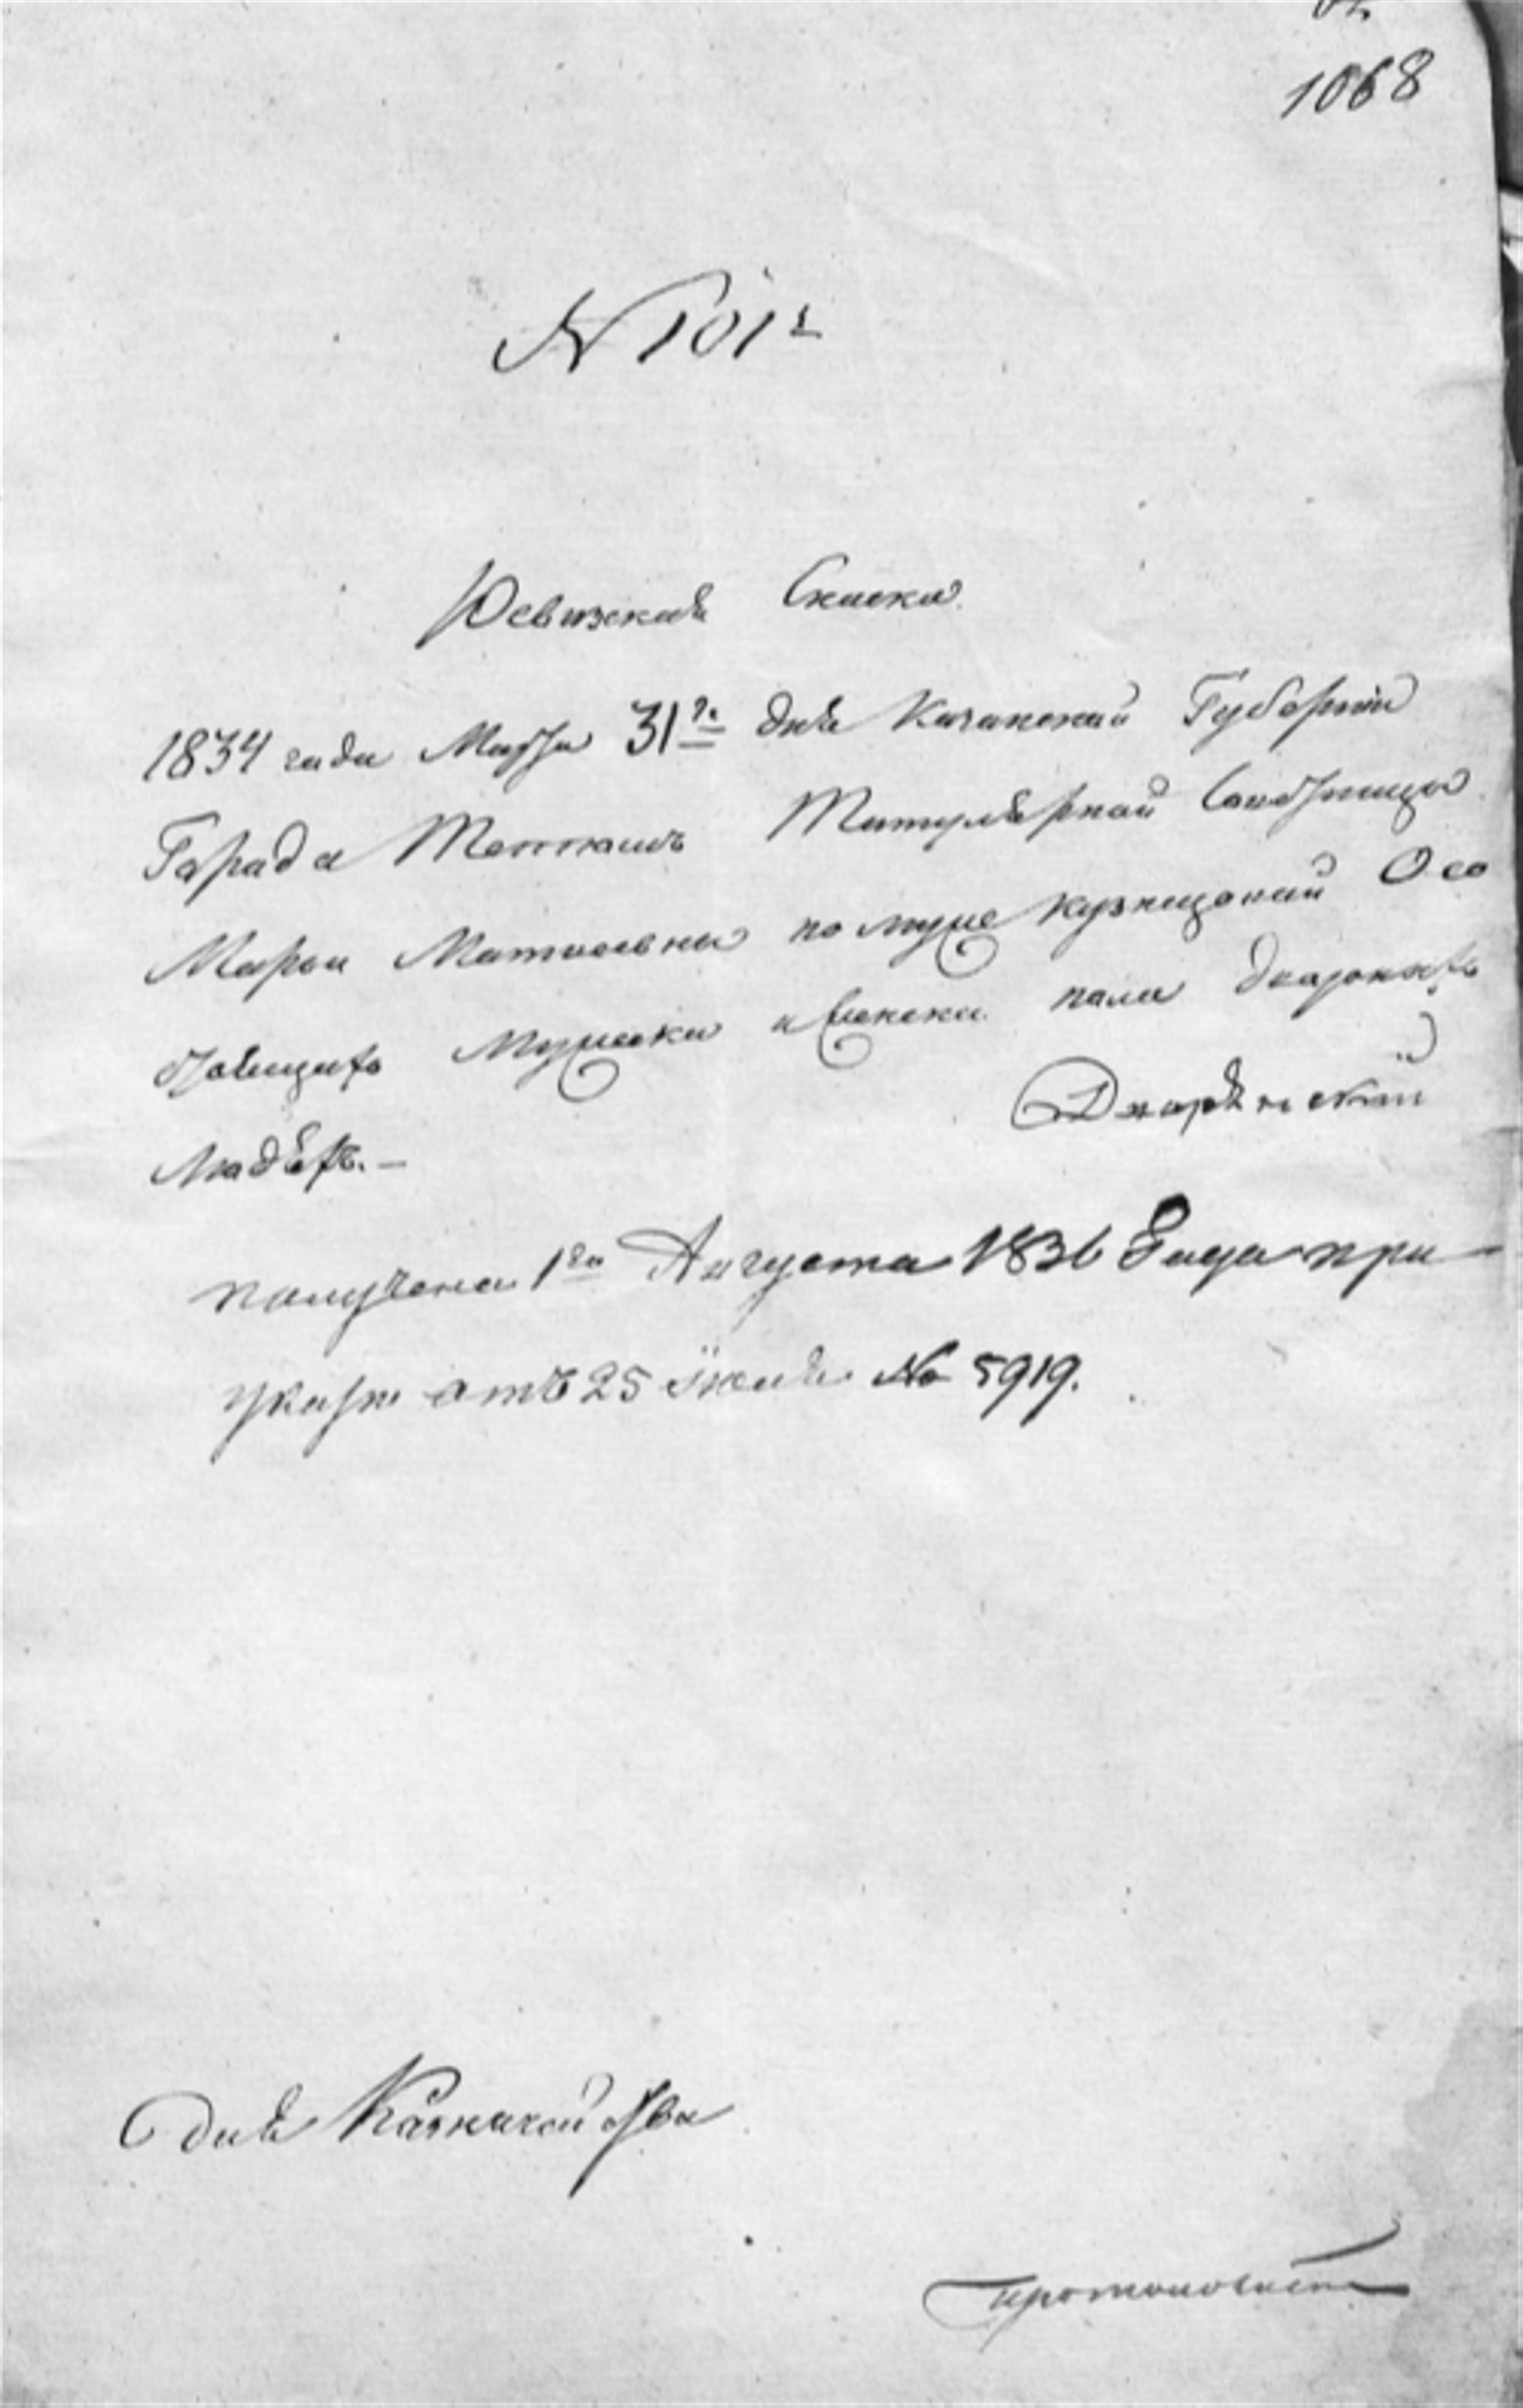 1068
N 101й
Ревизская Скаска
1834 года Марта 31го дня Казанской Губернии
Города Тетюшь Титулярной Советницы
Марьи Матвеевны по муже Кузнецовой О со
стоящихъ Мужеска и Женска пола дворовыхъ
Людяхъ. —
получена 1го Августа 1836 Года при
указе отъ 25 Июля № 5919.
для Казначейства